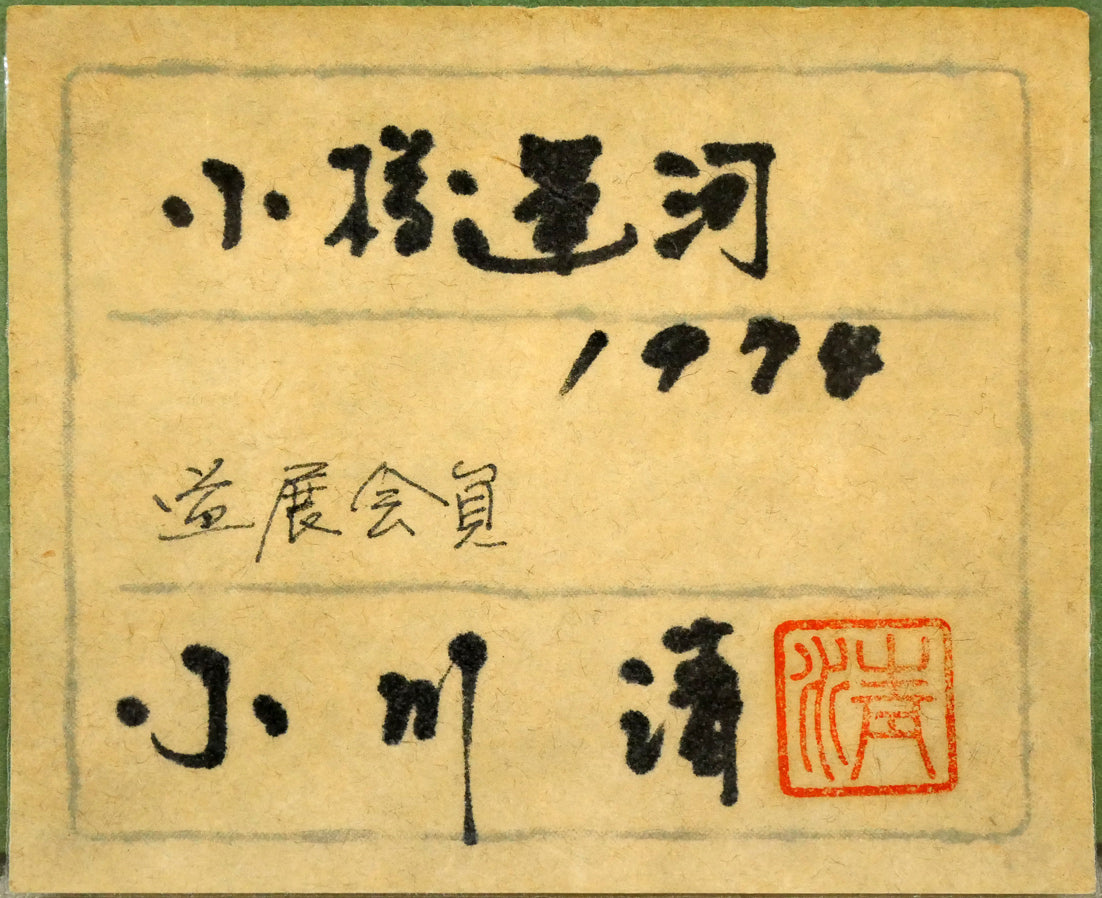 小樽運河
1974
道展会員
小川 清
清